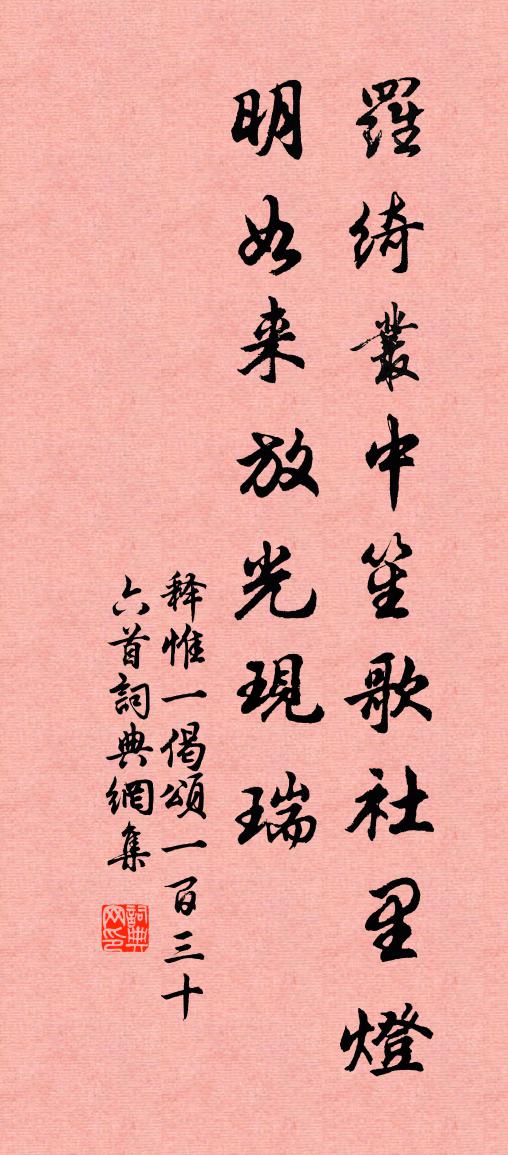 羅綺叢中笙歌社里燈
明如来放光現瑞
释惟一偈頌一百三十
六首詞典網集
詞典网印